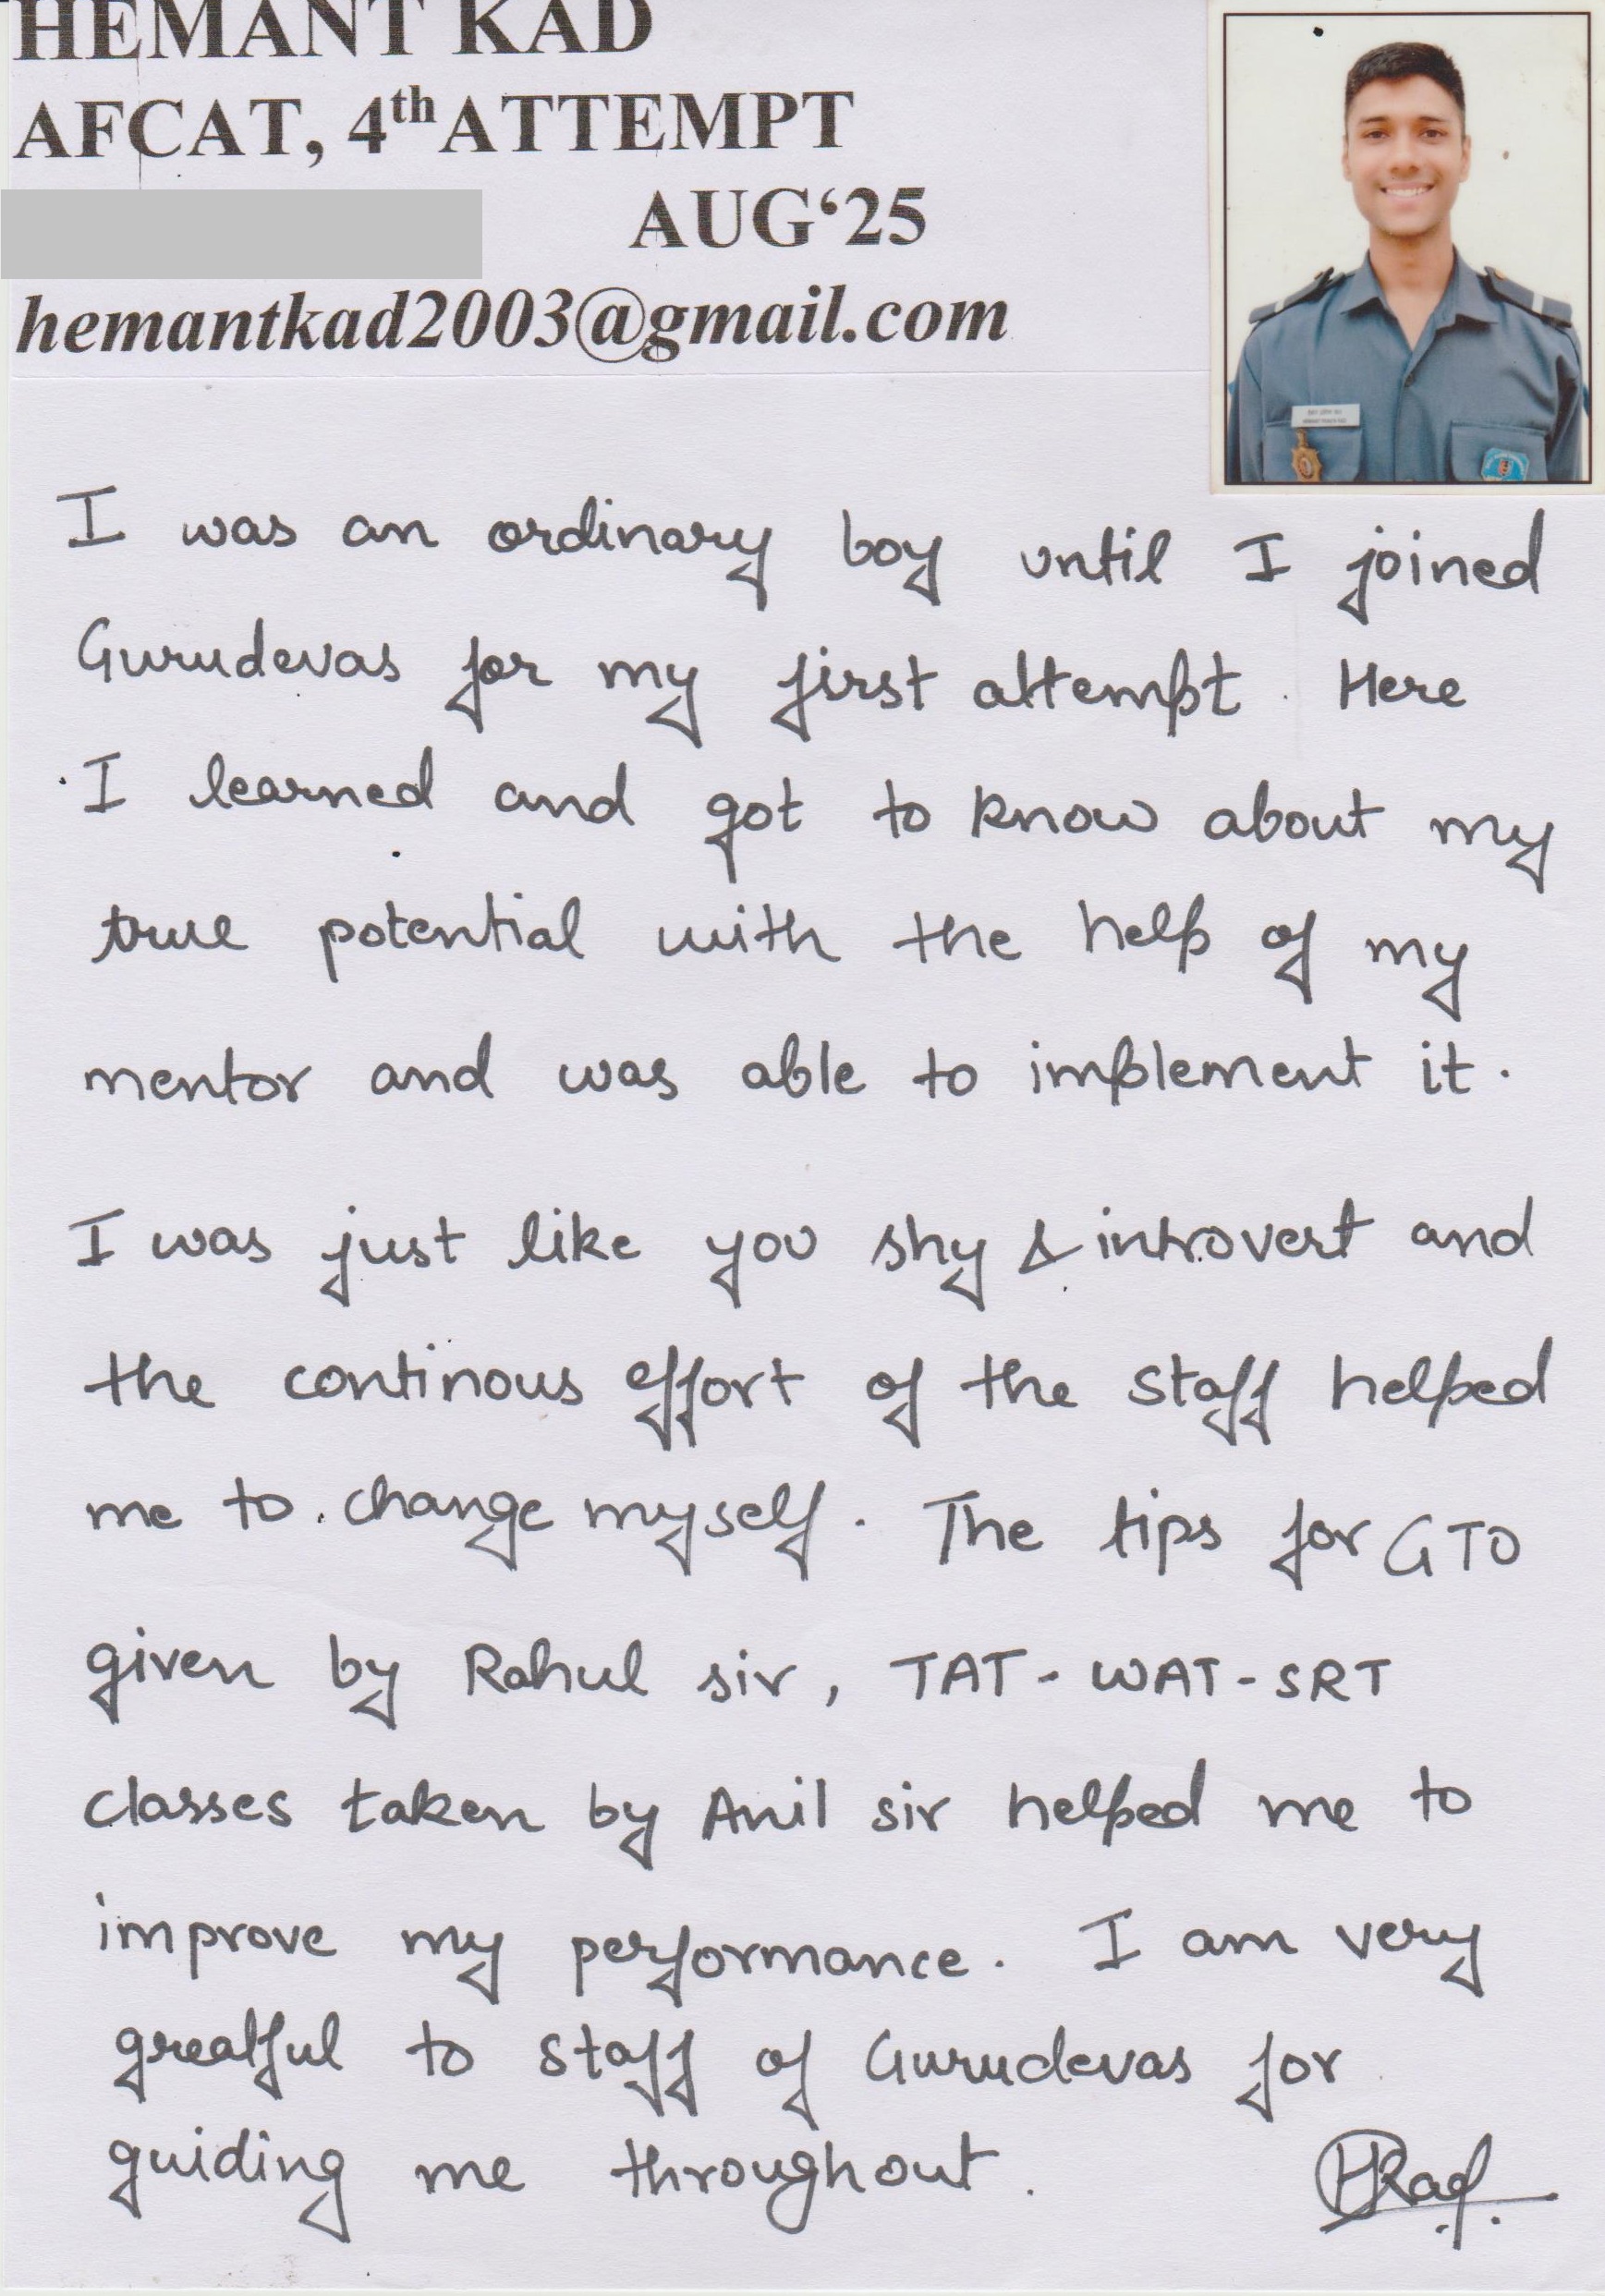 HEMANT KAD
AFCAT, 4th ATTEMPT
AUG‘25
hemantkad2003@gmail.com
I was an ordinary boy until I joined
Gurudevas for my first attempt. Here
I learned and got to know about my
true potential with the help of my
mentor and was able to implement it.
I was just like you shy & introvert and
the continous effort of the staff helped
me to change myself. The tips for GTO
given by Rahul sir, TAT-WAT-SRT
classes taken by Anil sir helped me to
improve my performance. I am very
greatful to staff of Gurudevas for
guiding me throughout.